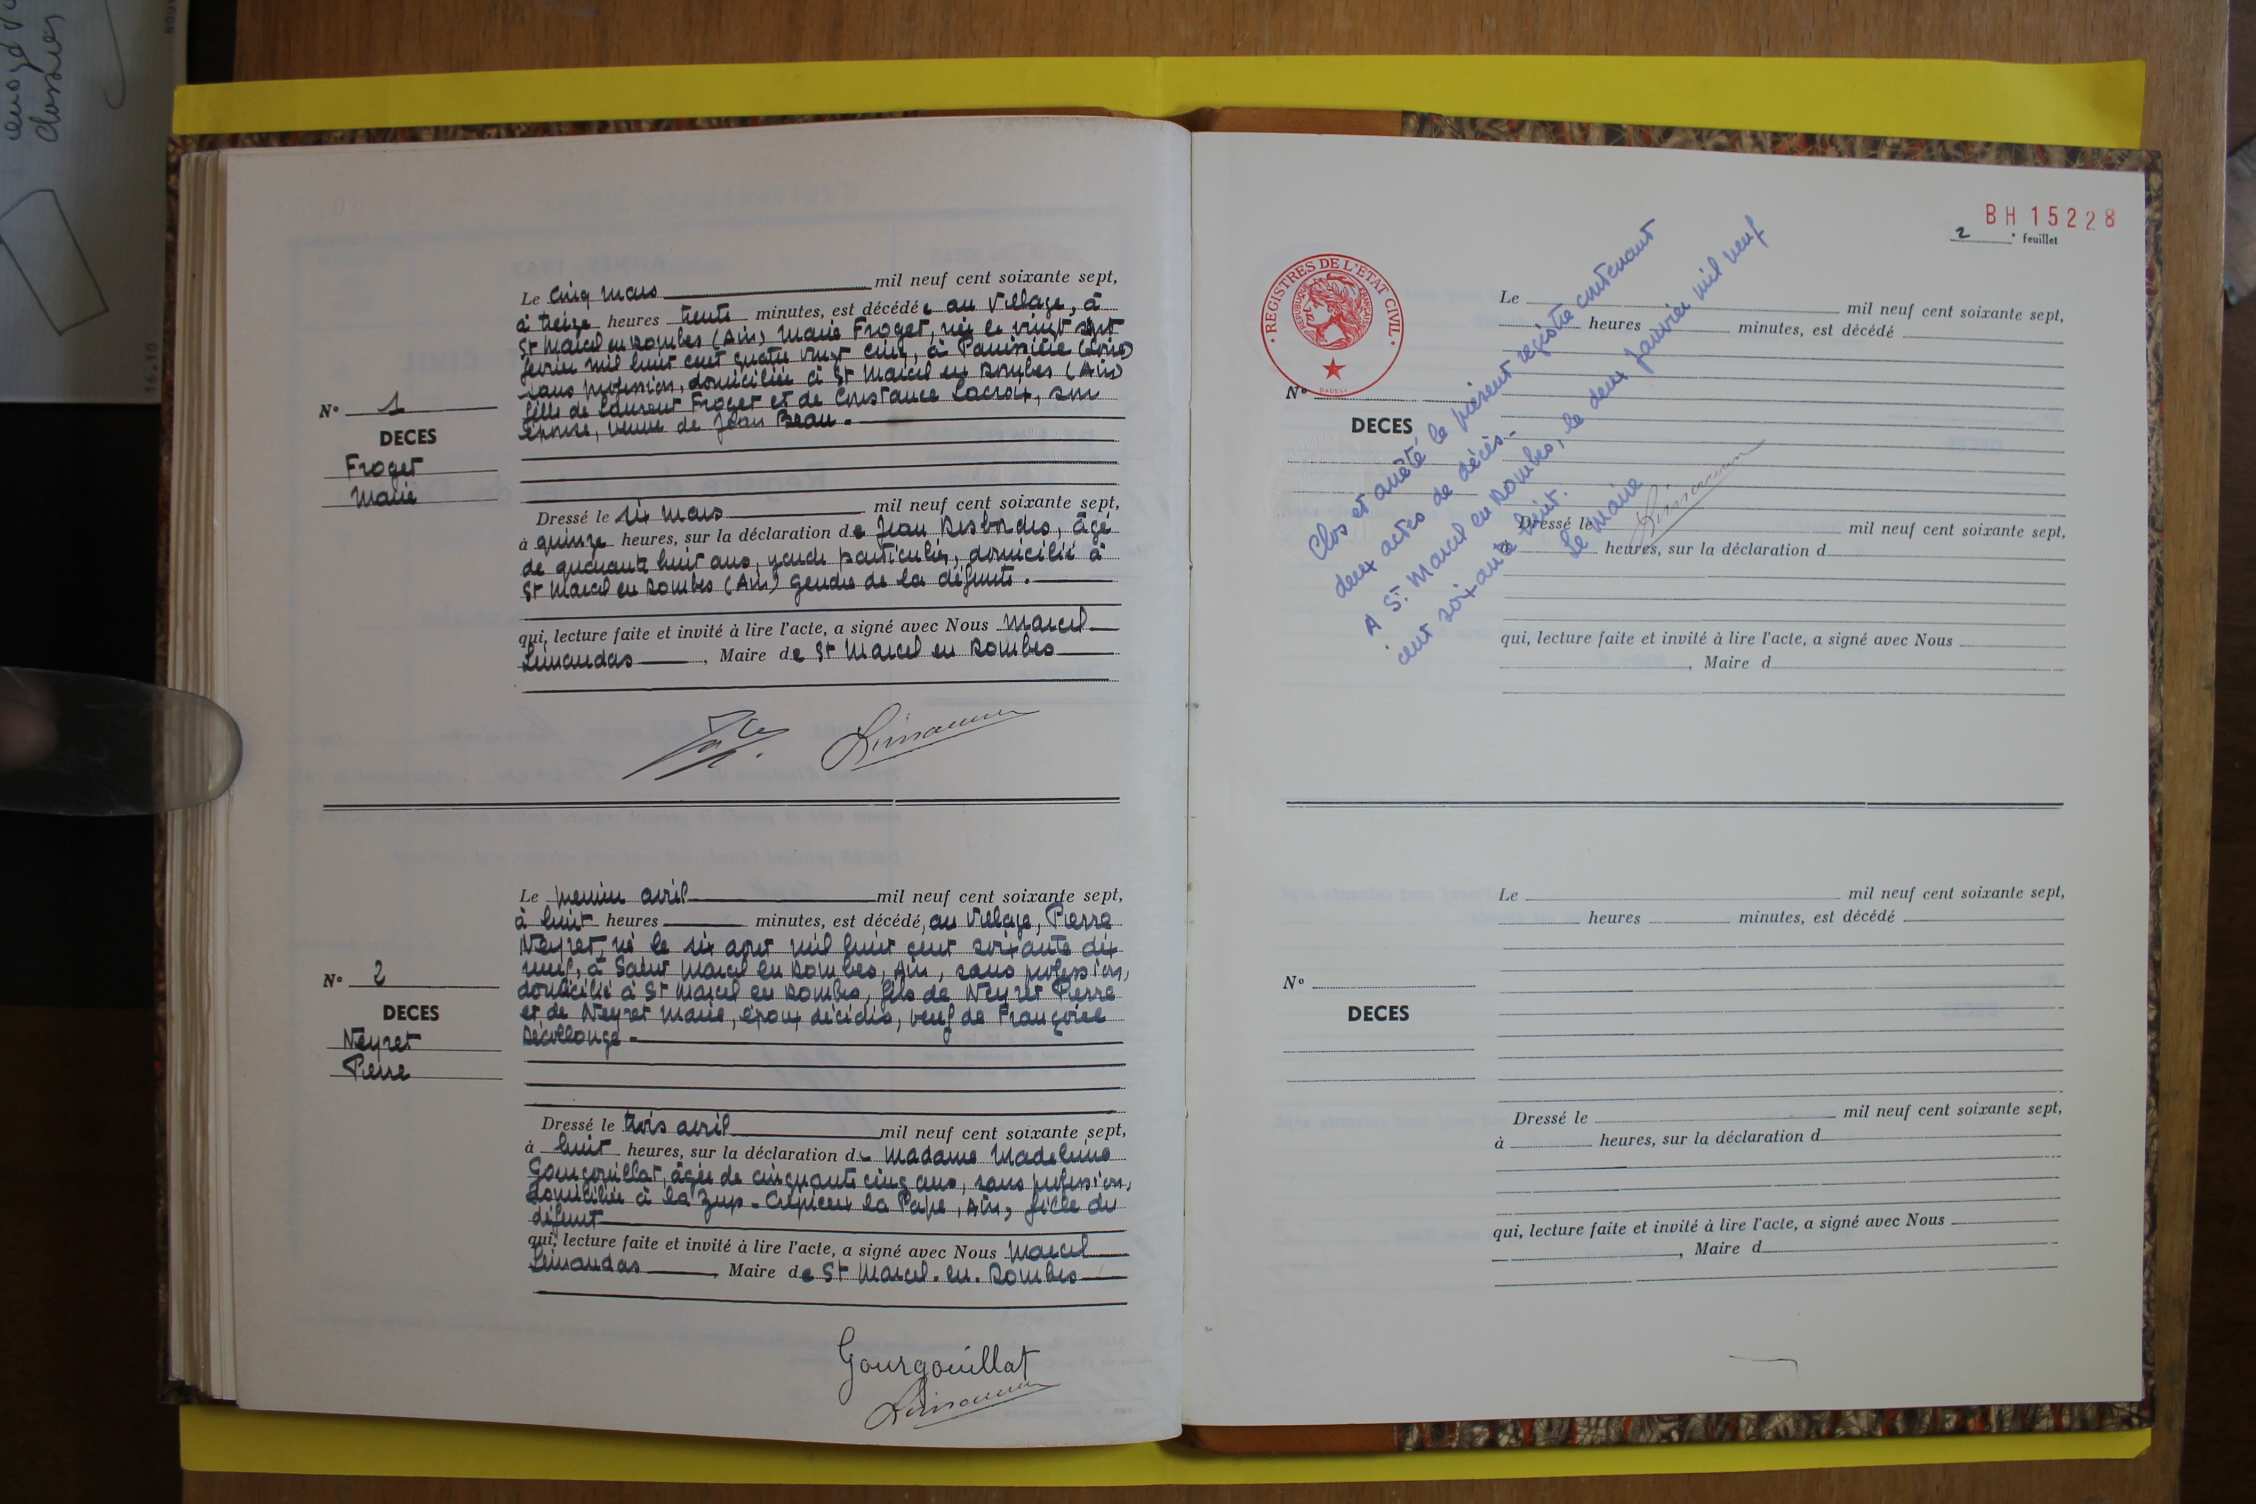 Le cinq mars mil neuf cent soixante sept,
à treize heures trente minutes, est décédée au Village, à
St Marcel en Dombes (Ain) Marie Froget, née le vingt sept
février mil huit cent quatre vingt cinq, à (Loire)
sans profession, domiciliée à St Marcel en Dombes (Ain)
fille de Laurent Froget et de Constance Lacroix, son
épouse, veuve de Jean Beau.
N° 1
DECES
Froget
Marie
Dressé le six mars mil neuf cent soixante sept,
à quinze heures, sur la déclaration de Jean Desbordes, âgé
de quarante huit ans, garde particulier, domicilié à
St Marcel en Dombes (Ain) gendre de la défunte.
qui, lecture faite et invité à lire l'acte, a signé avec Nous Marcel
Limandas, Maire de St Marcel en Dombes
Le premier avril mil neuf cent soixante sept,
à huit heures minutes, est décédé, au Village, Pierre
Neyret, né le six aout mil huit cent soixante dix
neuf, à Saint Marcel en Dombes, Ain, sans profession,
domicilié à St Marcel en Dombes, fils de Neyret Pierre
et de Neyret Marie, époux décédés, veuf de Françoise
Décollonge.
N° 2
DECES
Neyret
Pierre
Dressé le trois avril mil neuf cent soixante sept,
à huit heures, sur la déclaration de Madame Madeleine
Gourgouillat, âgée de cinquante cinq ans, sans profession,
domiciliée à la Zup - Crépieux la Pape, Ain, fille du
défunt
qui, lecture faite et invité à lire l'acte, a signé avec Nous Marcel
Limandas, Maire de St Marcel. en. Dombes
Gourgouillat
BH 15228
2 e feuillet
REGISTRES DE L'ETAT CIVIL
Clos et arrêté le présent registre contenant
deux actes de décès.
A St. Marcel en Dombes, le deux janvier mil neuf
cent soixante huit.
Le Maire
Le mil neuf cent soixante sept,
heures minutes, est décédé
N°
DECES
Dressé le mil neuf cent soixante sept,
à heures, sur la déclaration d
qui, lecture faite et invité à lire l'acte, a signé avec Nous
, Maire d
Le mil neuf cent soixante sept,
à heures minutes, est décédé
N°
DECES
Dressé le mil neuf cent soixante sept,
à heures, sur la déclaration d
qui, lecture faite et invité à lire l'acte, a signé avec Nous
, Maire d